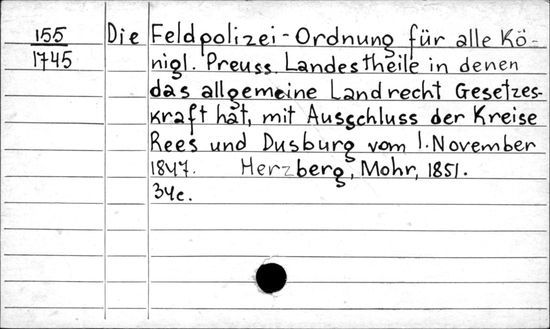 155 Die Feldpolizei-Ordnung für alle Kö-
1745 nigl. Preuss. Landestheile in denen
das allgemeine Landrecht Gesetzes-
kraft hat, mit Ausschluss der Kreise
Rees und Dusburg vom 1. November
1847. Herzberg, Mohr, 1851.
34c.